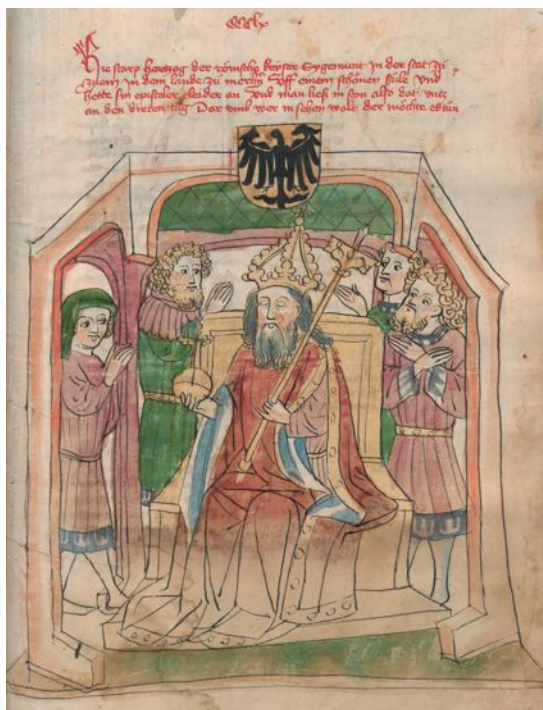 Hie starp herczog der römische keyser Sygemont In der stat zů
znem In dem lande zů merhern Vff einem schönen stůle Vnd
hette sin episteler cleider an Vnd man ließ in ston also dot vntz
an den dirten tag Dar vmb wer in sehen wolt der möchte es tůn